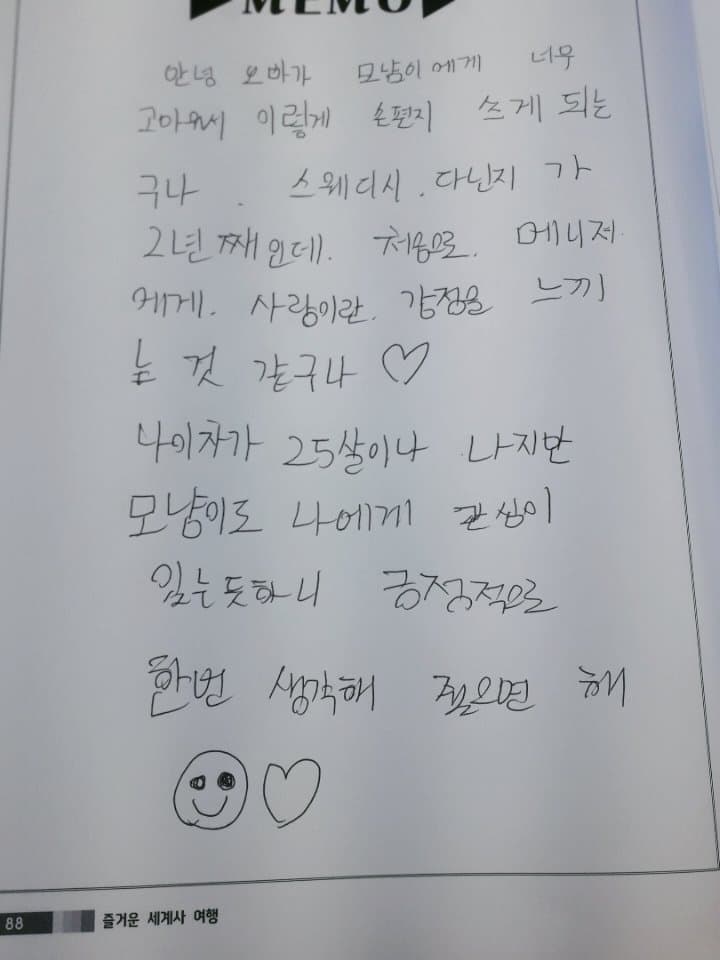 MEMO
안녕 오빠가 모냠이에게 너무
고마워서 이렇게 손편지 쓰게 되는
구나 . 스웨디시 . 다닌지 가
2년째인데. 처음으로. 메니저.
에게. 사랑이란. 감정을 느끼
는 것 같구나 ♡
나이차가 25살이나 나지만
모냠이도 나에게 관씸이
있는듯하니 긍정적으로
한번 생각해 해
88 즐거운 세계사 여행